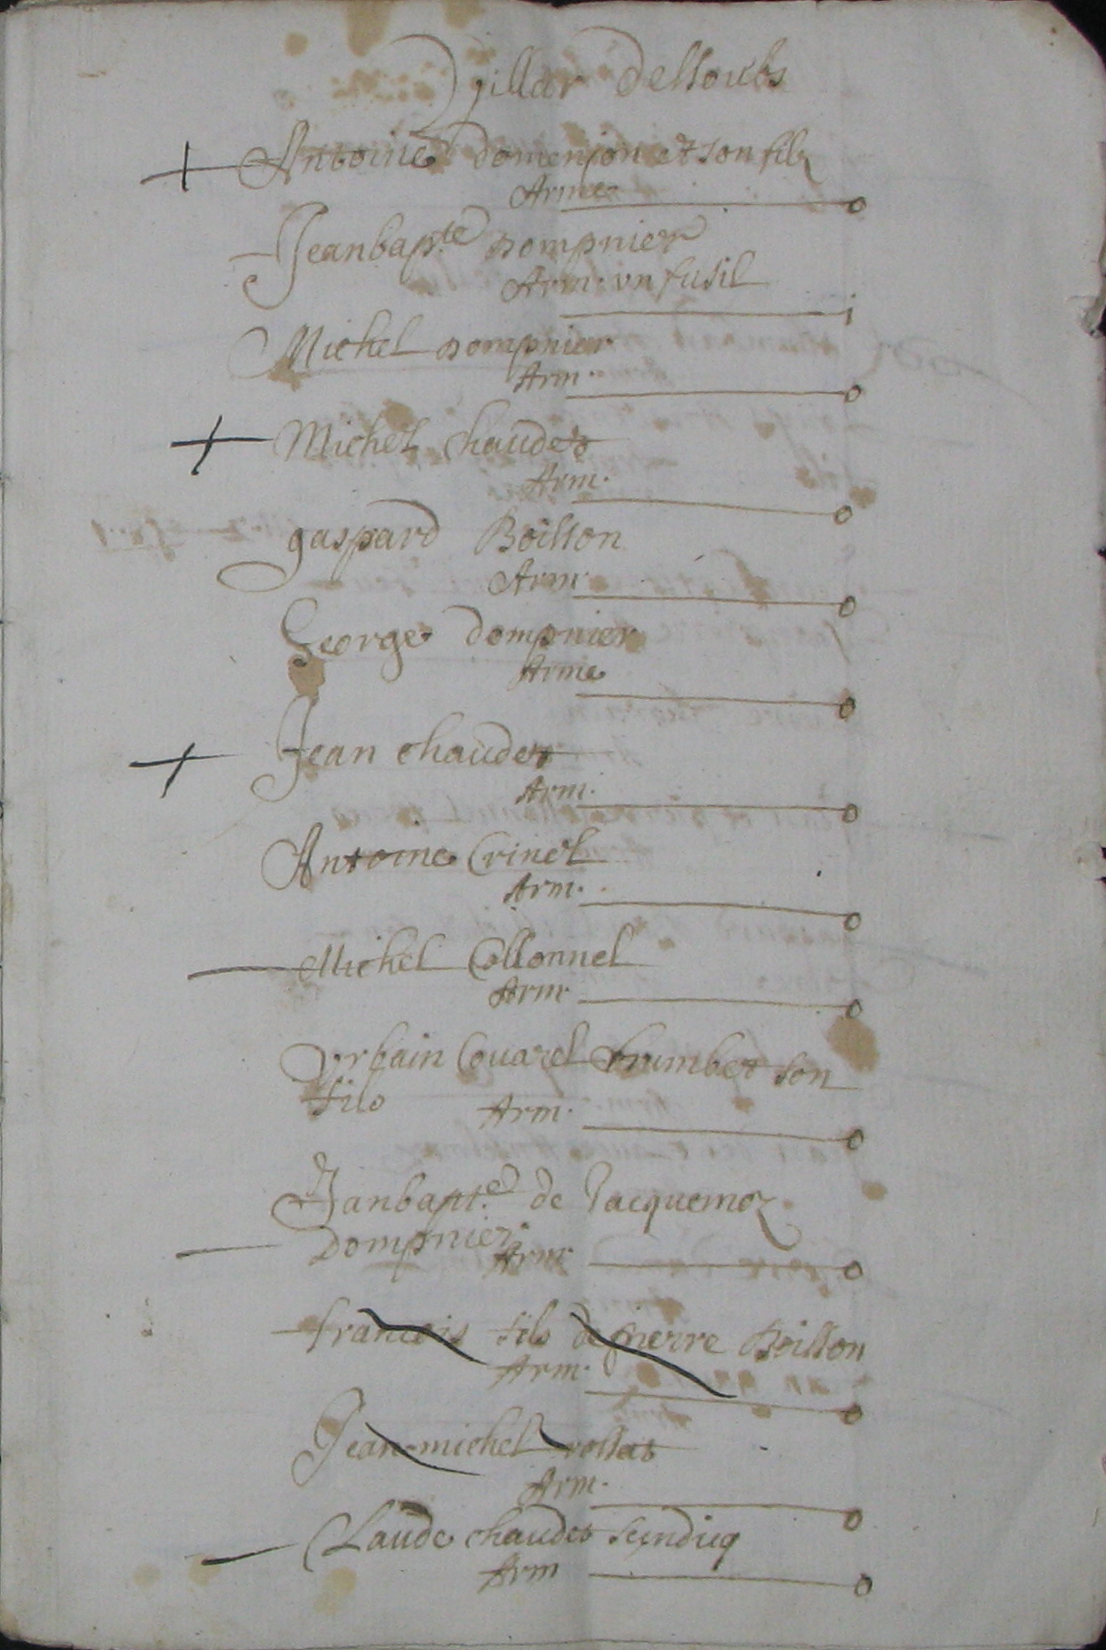 Villar dessoubs
+ Antoine domenjon et son filz
Arme o
Jeanbapte Dompnier
Arm. un fusil
1
Michel Dompnier
Arm. o
+ Michel Chaudet
Arm. o
gaspard Boisson
Arm. o
George dompnier
Arme o
+ Jean chaudet
Arm. o
Antoine Crinel
Arm. o
Michel Collonnel
Arm. o
Urbain Couarel son
fils Arm. o
Janbapte de Jacquemoz
Dompnier Arm. o
francois fils de pierre Boisson
Arm. o
Jean michel rossat
Arm. o
Claude chaudet scindicq
Arm o